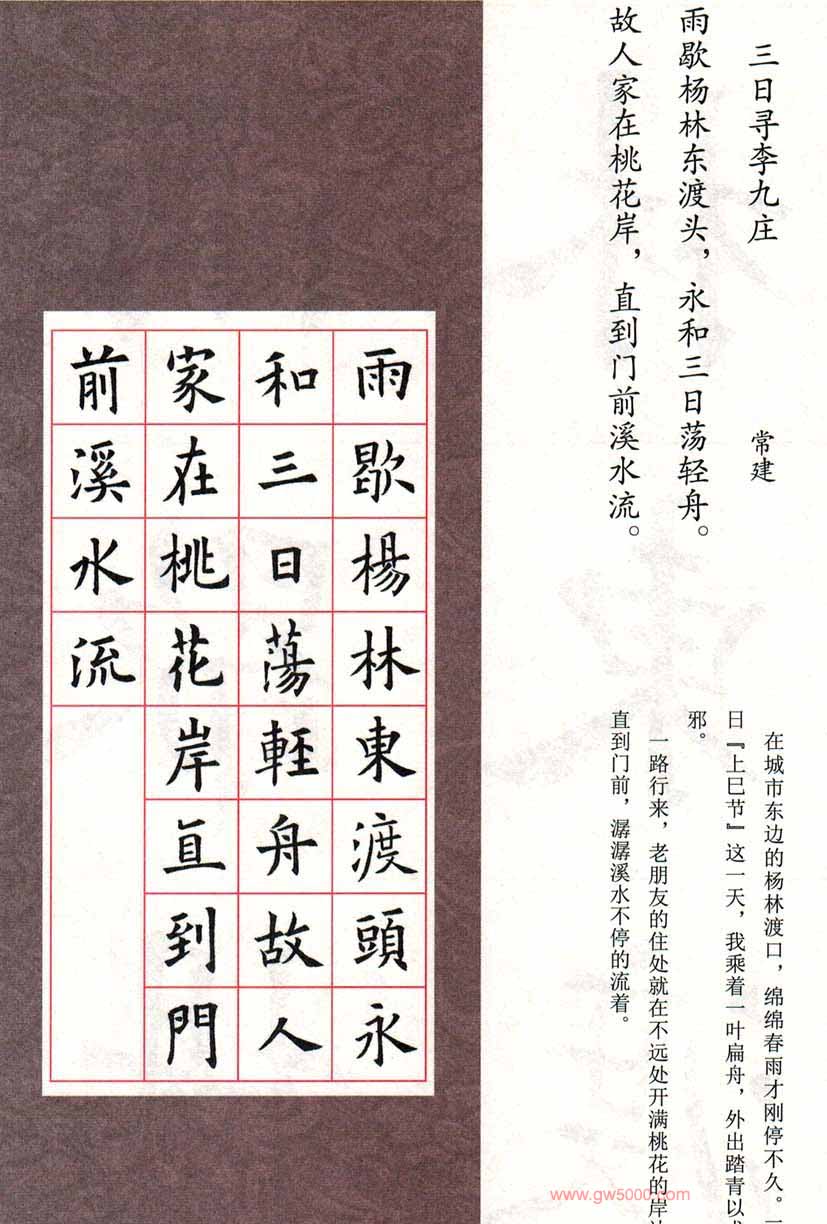 三日寻李九庄
常建
雨歇杨林东渡头，永和三日荡轻舟。
故人家在桃花岸，直到门前溪水流。
在城市东边的杨林渡口，绵绵春雨才刚停不久。
日『上巳节』这一天，我乘着一叶扁舟，外出踏青以
邪。
一路行来，老朋友的住处就在不远处开满桃花的岸
直到门前，潺潺溪水不停的流着。
雨歇楊林東渡頭永
和三日蕩輕舟故人
家在桃花岸直到門
前溪水流
www.gw5000.com